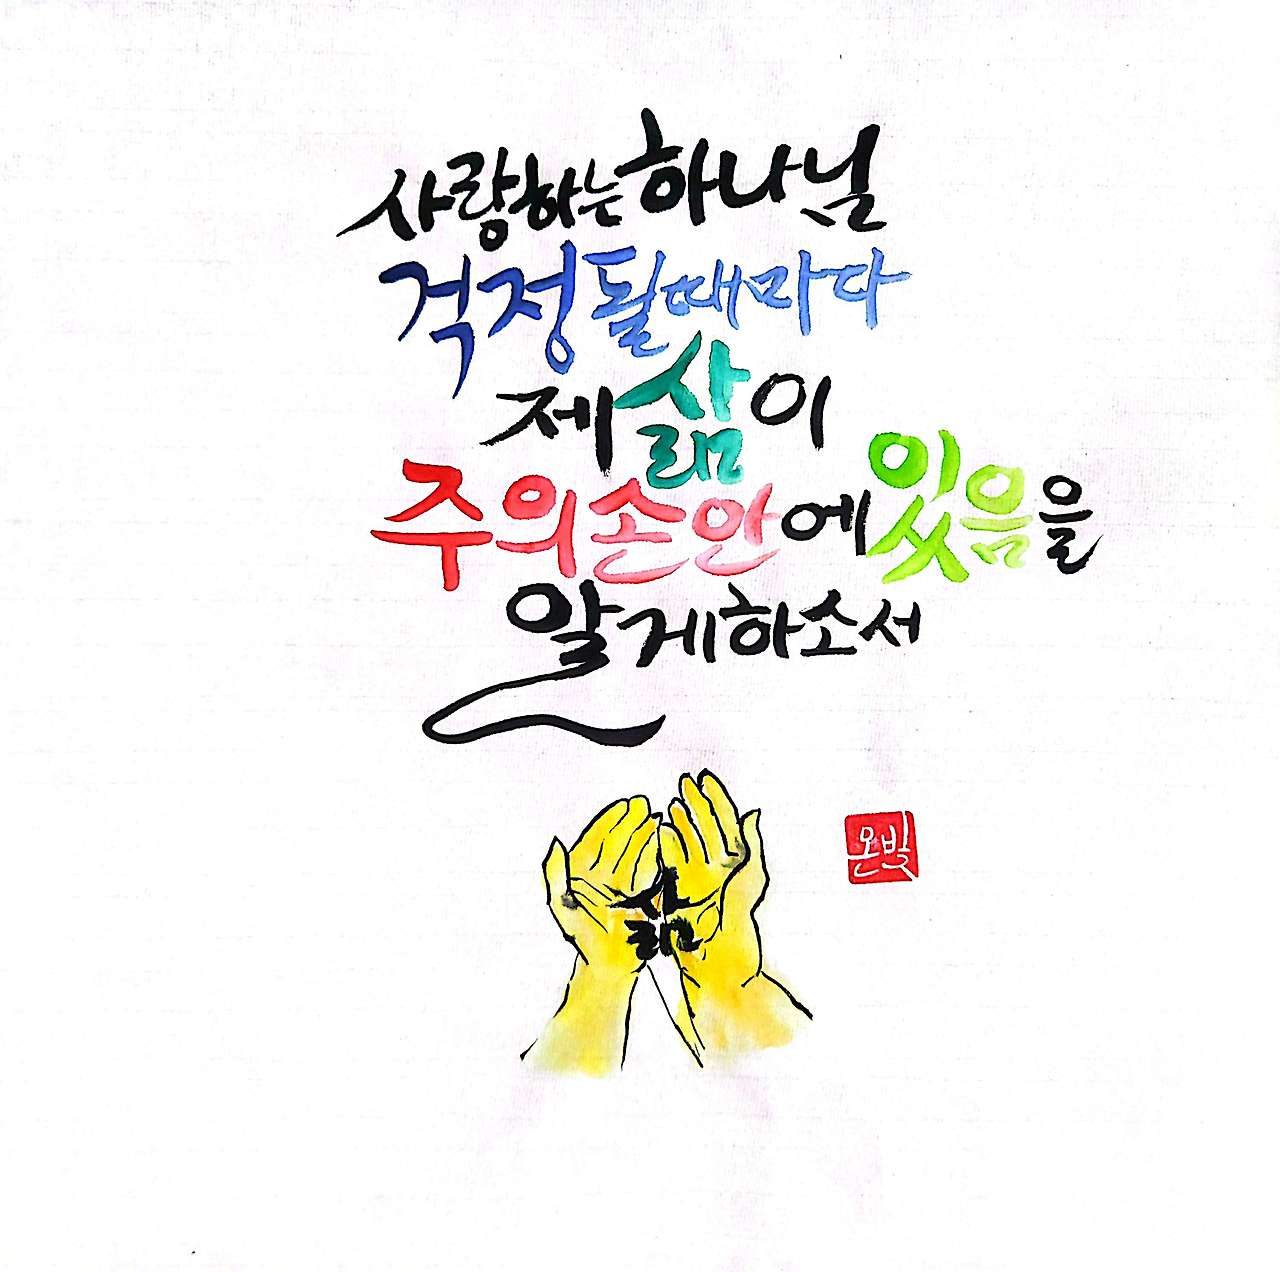 사랑하는 하나님
걱정될때마다
제 삶이
주의 손 안에 있음을
알게하소서
삶
온빛